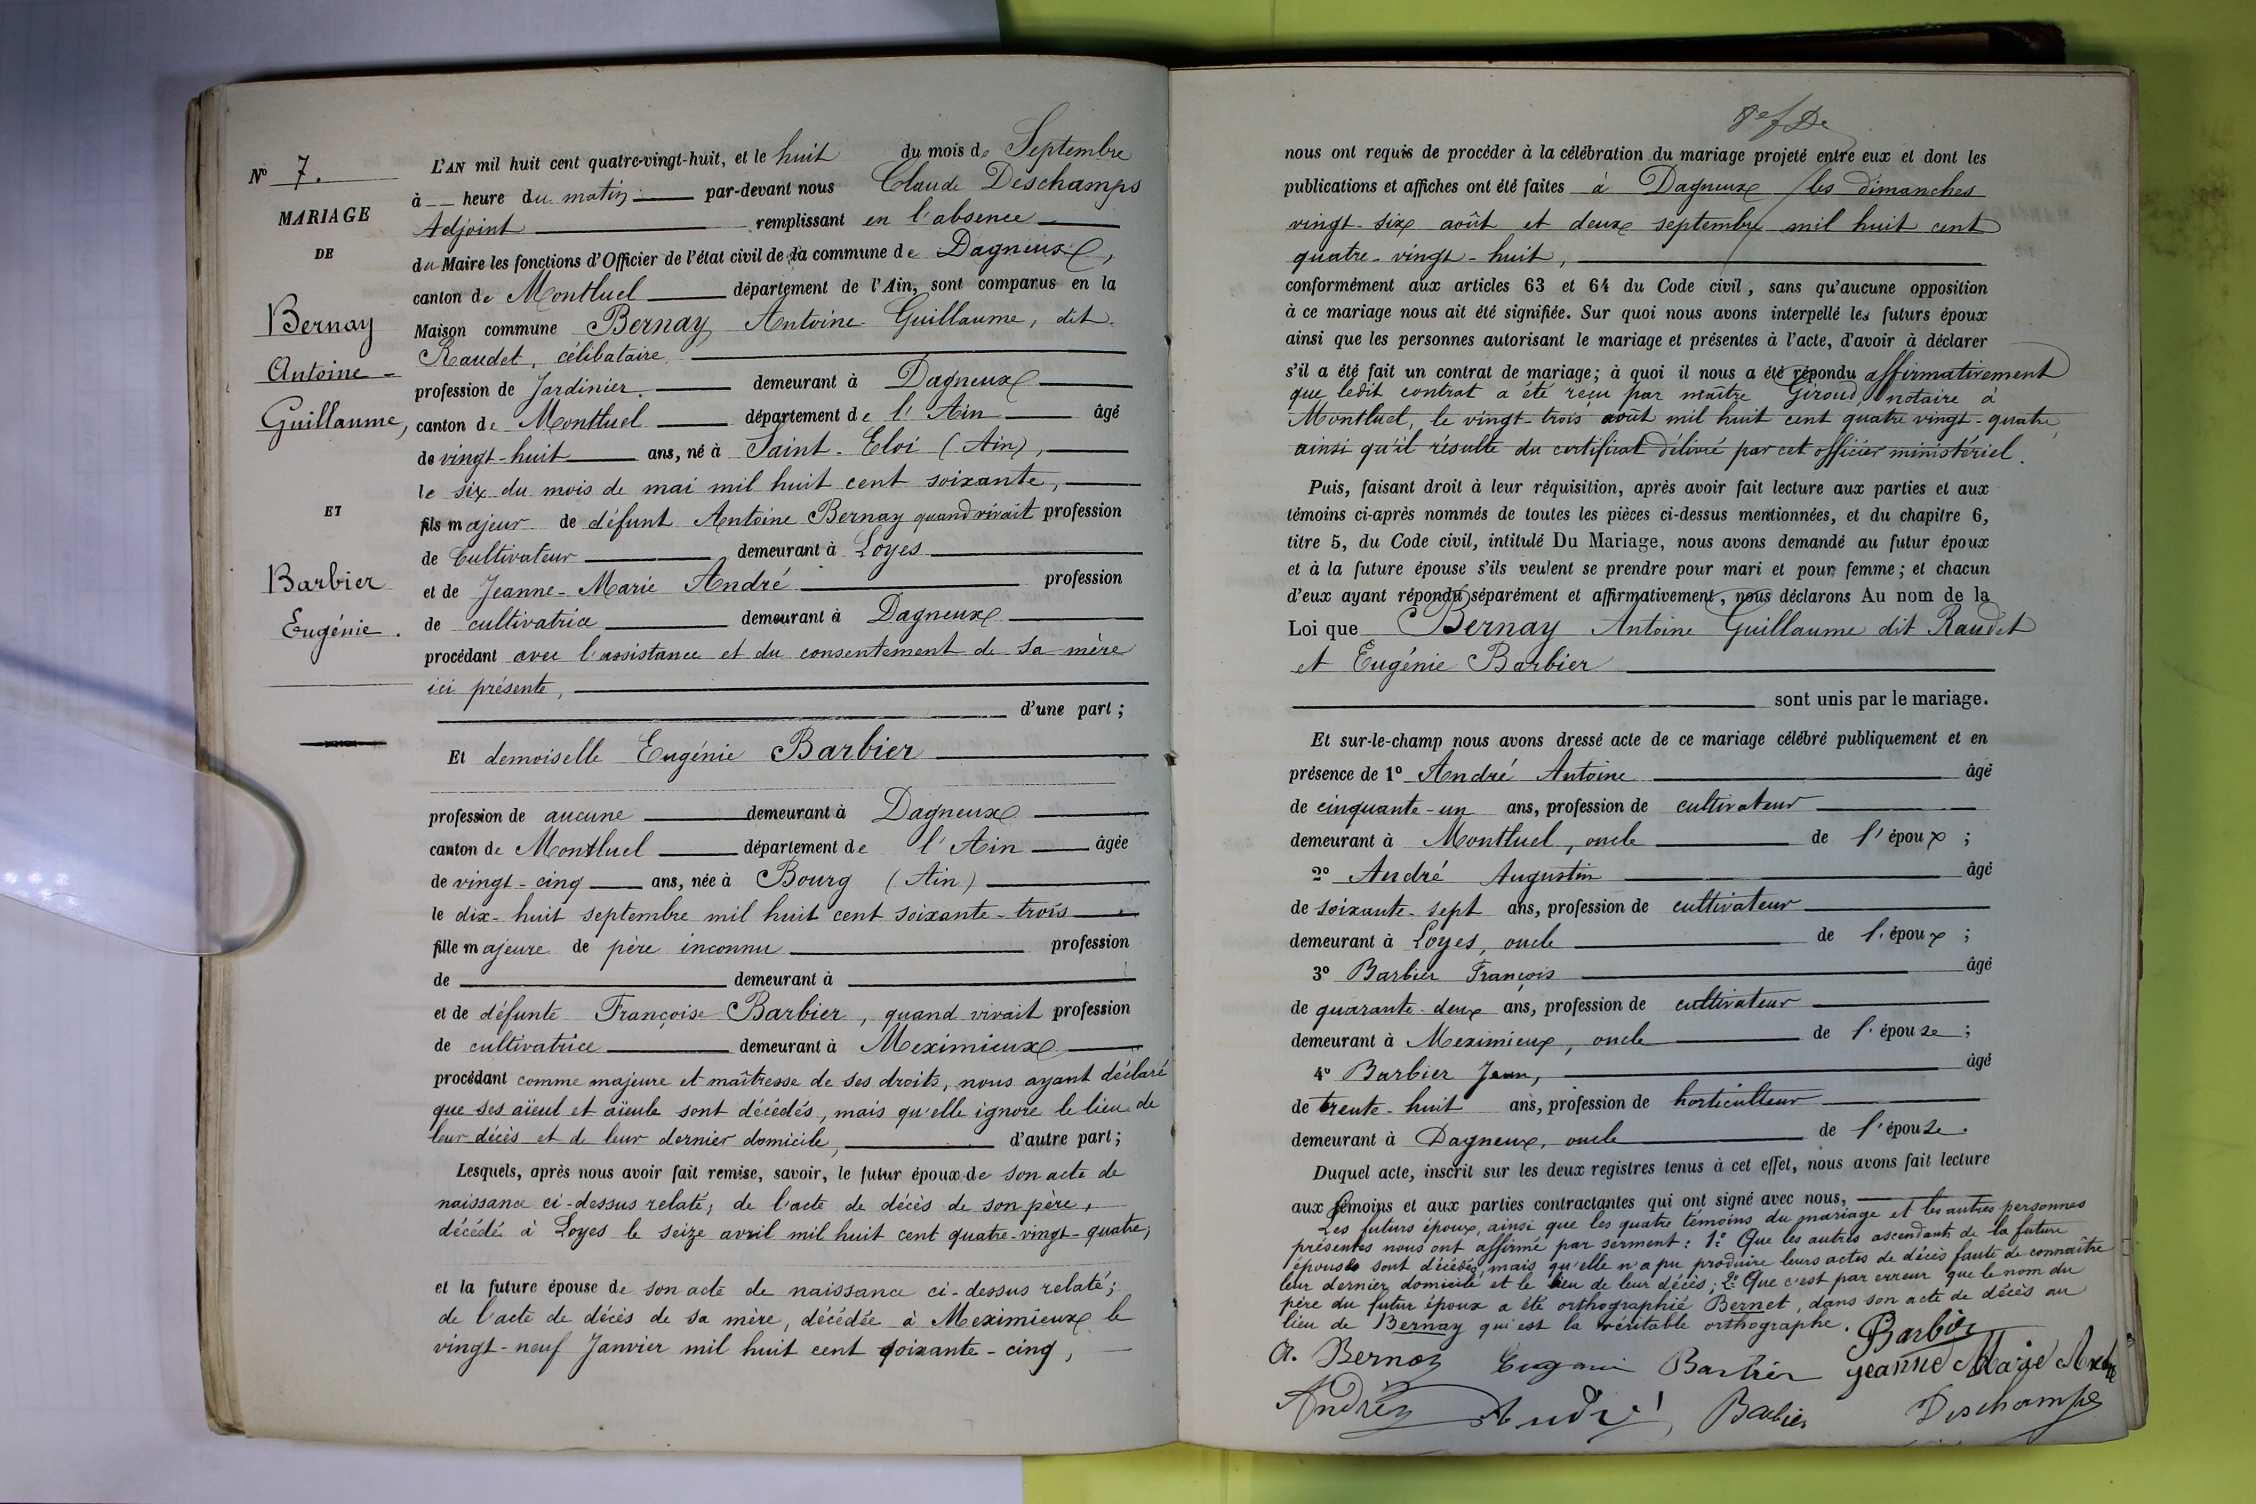 N° 7.
MARIAGE
DE
Bernay
Antoine-
Guillaume,
ET
Barbier
Eugénie.
L'AN mil huit cent quatre-vingt-huit, et le huit du mois de Septembre
à heure du matin par-devant nous Claude Deschamps
Adjoint remplissant en l'absence
du Maire les fonctions d'Officier de l'état civil de la commune de Dagneux,
canton de Montluel département de l'Ain, sont comparus en la
Maison commune Bernay Antoine Guillaume, dit
Raudet, célibataire
profession de Jardinier. demeurant à Dagneux
canton de Montluel département de l'Ain âgé
de vingt-huit ans, né à Saint-Eloi (Ain),
le six du mois de mai mil huit cent soixante,
fils majeur de défunt Antoine Bernay quand vivait profession
de Cultivateur demeurant à Loyes
et de Jeanne-Marie André profession
de cultivatrice demeurant à Dagneux
procédant avec l'assistance et du consentement de sa mère
ici présente,
d'une part;
Et demoiselle Eugénie Barbier
profession de aucune demeurant à Dagneux
canton de Montluel département de l'Ain âgée
de vingt-cinq ans, née à Bourg (Ain)
le dix-huit septembre mil huit cent soixante-trois
fille majeure de père inconnu profession
de demeurant à
et de défunte Françoise Barbier, quand vivait profession
de cultivatrice demeurant à Meximieux
procédant comme majeure et maîtresse de ses droits, nous ayant déclaré
que ses aïeul et aïeule sont décédés, mais qu'elle ignore le lieu de
leur décès et de leur dernier domicile, d'autre part;
Lesquels, après nous avoir fait remise, savoir, le futur époux de son acte de
naissance ci-dessus relaté; de l'acte de décès de son père,
décédé à Loyes le seize avril mil huit cent quatre-vingt-quatre,
et la future épouse de son acte de naissance ci-dessus relaté;
de l'acte de décès de sa mère, décédée à Meximieux le
vingt-neuf Janvier mil huit cent soixante-cinq,
nous ont requis de procéder à la célébration du mariage projeté entre eux et dont les
publications et affiches ont été faites à Dagneux les dimanches
vingt-six août et deux septembre mil huit cent
quatre-vingt-huit,
conformément aux articles 63 et 64 du Code civil, sans qu'aucune opposition
à ce mariage nous ait été signifiée. Sur quoi nous avons interpellé les futurs époux
ainsi que les personnes autorisant le mariage et présentes à l'acte, d'avoir à déclarer
s'il a été fait un contrat de mariage; à quoi il nous a été répondu affirmativement
que ledit contrat a été reçu par maître Giroud, notaire à
Montluel, le vingt-trois août mil huit cent quatre vingt-quatre,
ainsi qu'il résulte du certificat délivré par cet officier ministériel.
Puis, faisant droit à leur réquisition, après avoir fait lecture aux parties et aux
témoins ci-après nommés de toutes les pièces ci-dessus mentionnées, et du chapitre 6,
titre 5, du Code civil, intitulé Du Mariage, nous avons demandé au futur époux
et à la future épouse s'ils veulent se prendre pour mari et pour femme; et chacun
d'eux ayant répondu séparément et affirmativement, nous déclarons Au nom de la
Loi que Bernay Antoine Guillaume dit Raudet
et Eugénie Barbier
sont unis par le mariage.
Et sur-le-champ nous avons dressé acte de ce mariage célébré publiquement et en
présence de 1° André Antoine âgé
de cinquante-un ans, profession de cultivateur
demeurant à Montluel, oncle de l'époux;
2° André Augustin âgé
de soixante-sept ans, profession de cultivateur
demeurant à Loyes, oncle de l'époux;
3° Barbier François âgé
de quarante-deux ans, profession de cultivateur
demeurant à Meximieux, oncle de l'épouse;
4° Barbier Jean, âgé
de trente-huit ans, profession de horticulteur
demeurant à Dagneux, oncle de l'épouse.
Duquel acte, inscrit sur les deux registres tenus à cet effet, nous avons fait lecture
aux témoins et aux parties contractantes qui ont signé avec nous,
Les futurs époux, ainsi que les quatre témoins du mariage et les autres personnes
présentes nous ont affirmé par serment: 1° Que les autres ascendants de la future
épouse sont décédés, mais qu'elle n'a pu produire leurs actes de décès faute de connaître
leur dernier domicile et le lieu de leur décès; 2° Que c'est par erreur que le nom du
père du futur époux a été orthographié Bernet, dans son acte de décès au
lieu de Bernay qui est la véritable orthographe. Barbier
A. Bernay Eugénie Barbier Jeanne Marie André
André André Barbier Deschamps